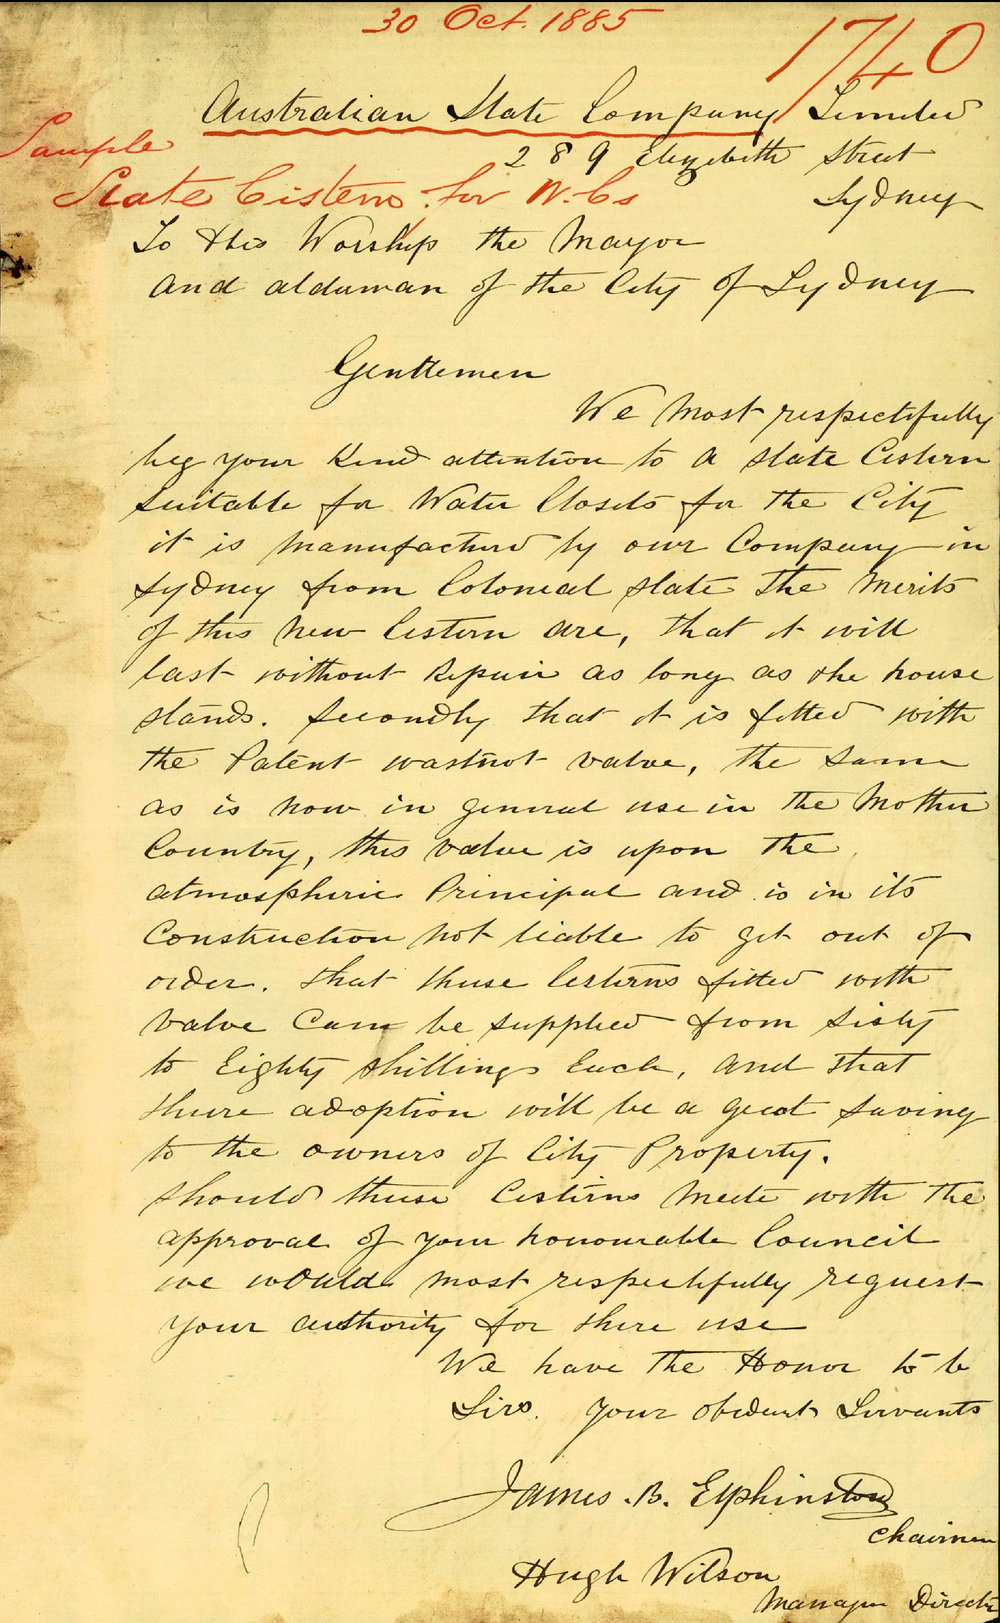 30 Oct. 1885
1740
Australian Slate Company Limited
289 Elizebeth Street
Sample
Slate Cisterns for W.Cs
Sydney
To His Worship the Mayor
and alderman of the City of Sydney
Gentlemen
We most respectifully
beg your Kind attention to a slate Cistern
suitable for Water Closets for the City
it is manufactured by our Company in
Sydney from Colonial slate The merits
of this new Cistern are, that it will
last without Repair as long as the house
stands. Secondly that it is fitted with
the Patent wastnot valve, the same
as is now in general use in the Mother
Country, this valve is upon the
atmospheric Principal and is in its
Construction not liable to get out of
order. that these Cisterns fitted with
Valve Can be supplied from Sixty
to Eighty shillings Each, and that
there adoption will be a great saving
to the owners of City Property.
Should these Cisterns meete with the
approval of your honourable Council
we would most respectifully request
your authority for there use
We have the Honor to be
Sirs. your obedient Servants
James. B. Elphinstone
Chairman
Hugh Wilson
Managin Director